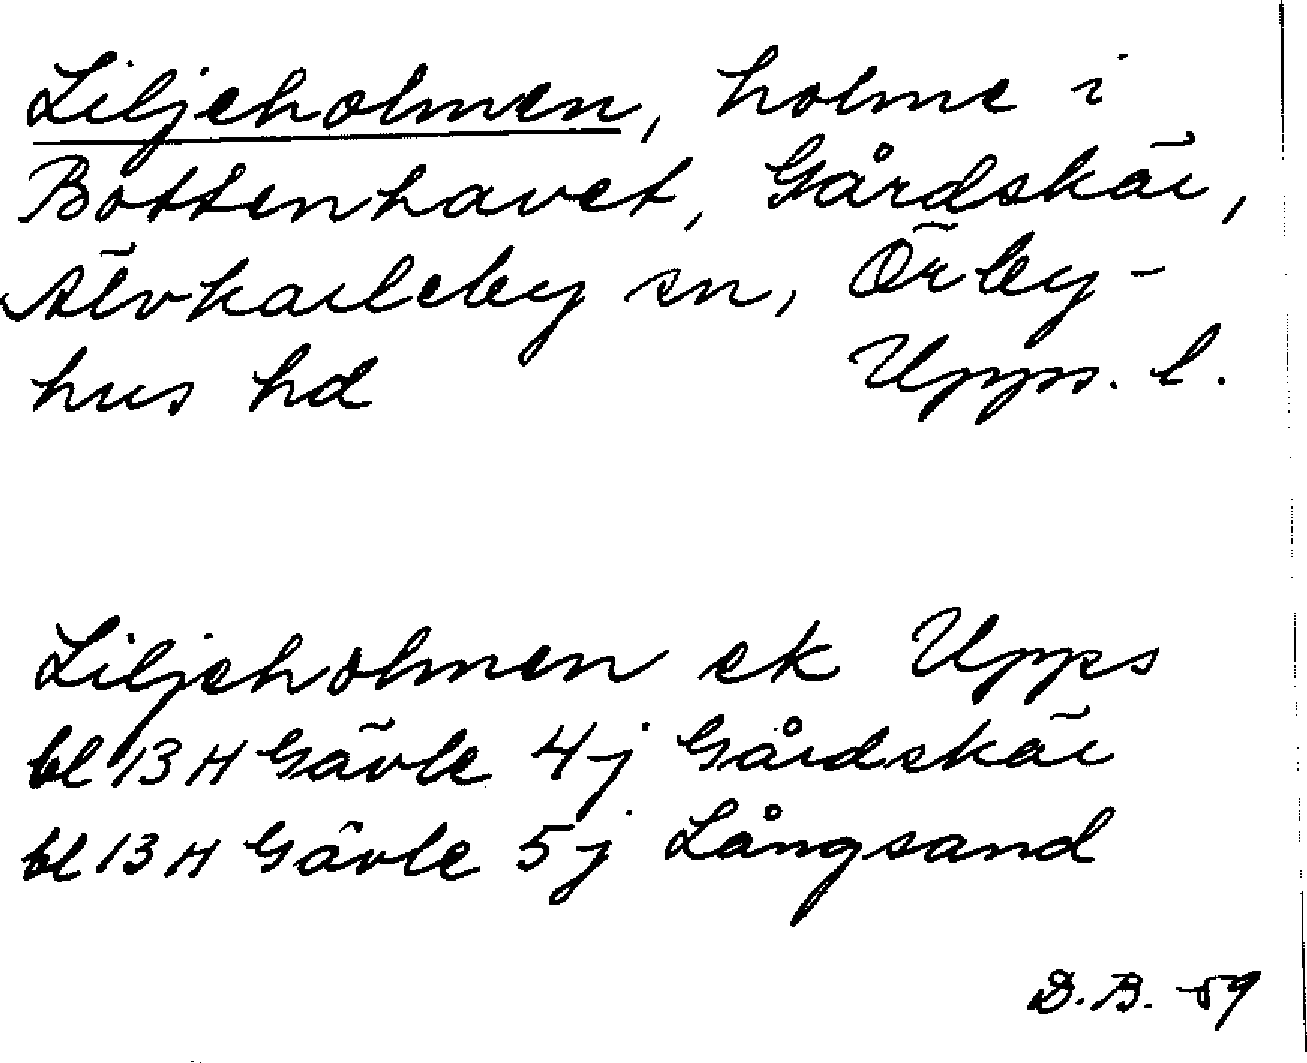 Liljeholmen, holme i
Bottenhavet, Gårdskär,
Älvkarleby sn, Örby-
hus hd Upps. l.
Liljeholmen ek Upps
bl 13 H Gävle 4j Gårdskär
bl 13 H Gävle 5j Långsand
D.B. -59